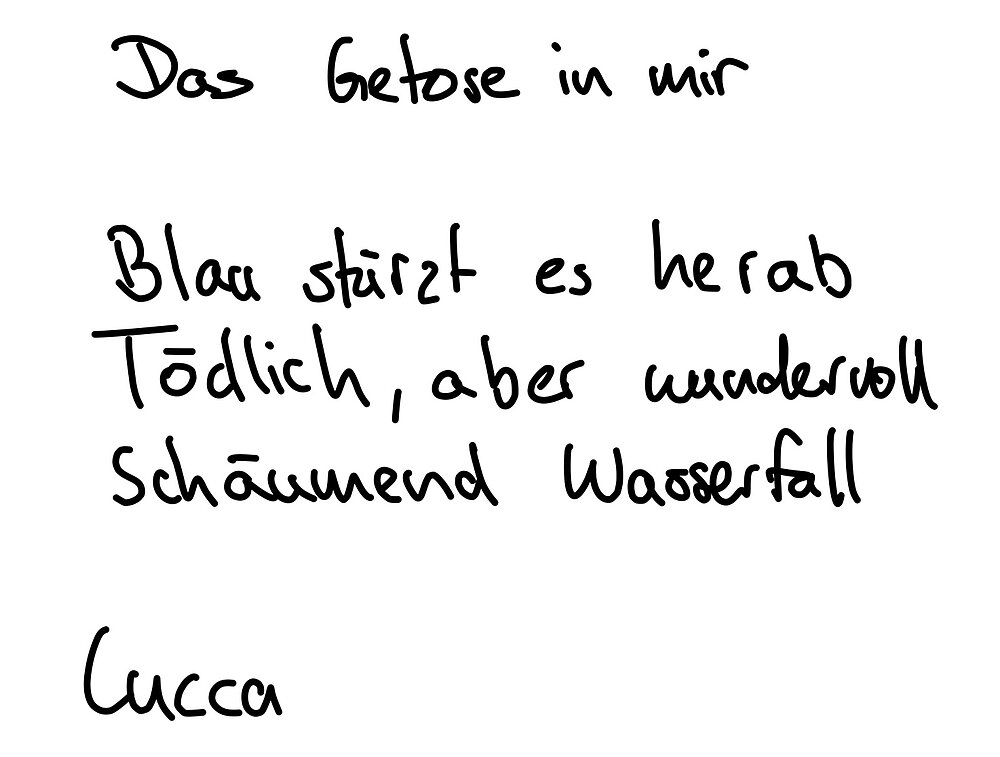 Das Getose in mir
Blau stürzt es herab
Tödlich, aber wundervoll
Schäumend Wasserfall
Lucca